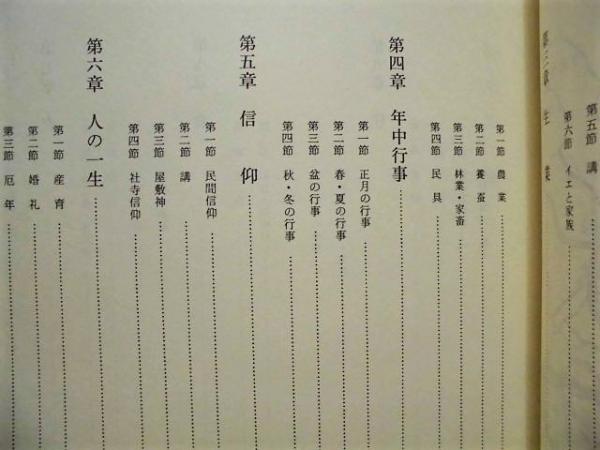 第五節 講
第六節 イエと家族
第三章 生業
第一節 農業
第二節 養蚕
第三節 林業・家畜
第四節 民具
第四章 年中行事
第一節 正月の行事
第二節 春・夏の行事
第三節 盆の行事
第四節 秋・冬の行事
第五章 信仰
第一節 民間信仰
第二節 講
第三節 屋敷神
第四節 社寺信仰
第六章 人の一生
第一節 産育
第二節 婚礼
第三節 厄年